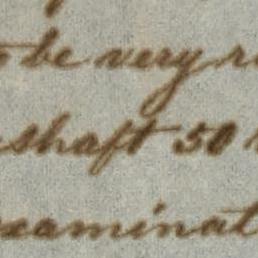 to be very r
shaft 50
examinat